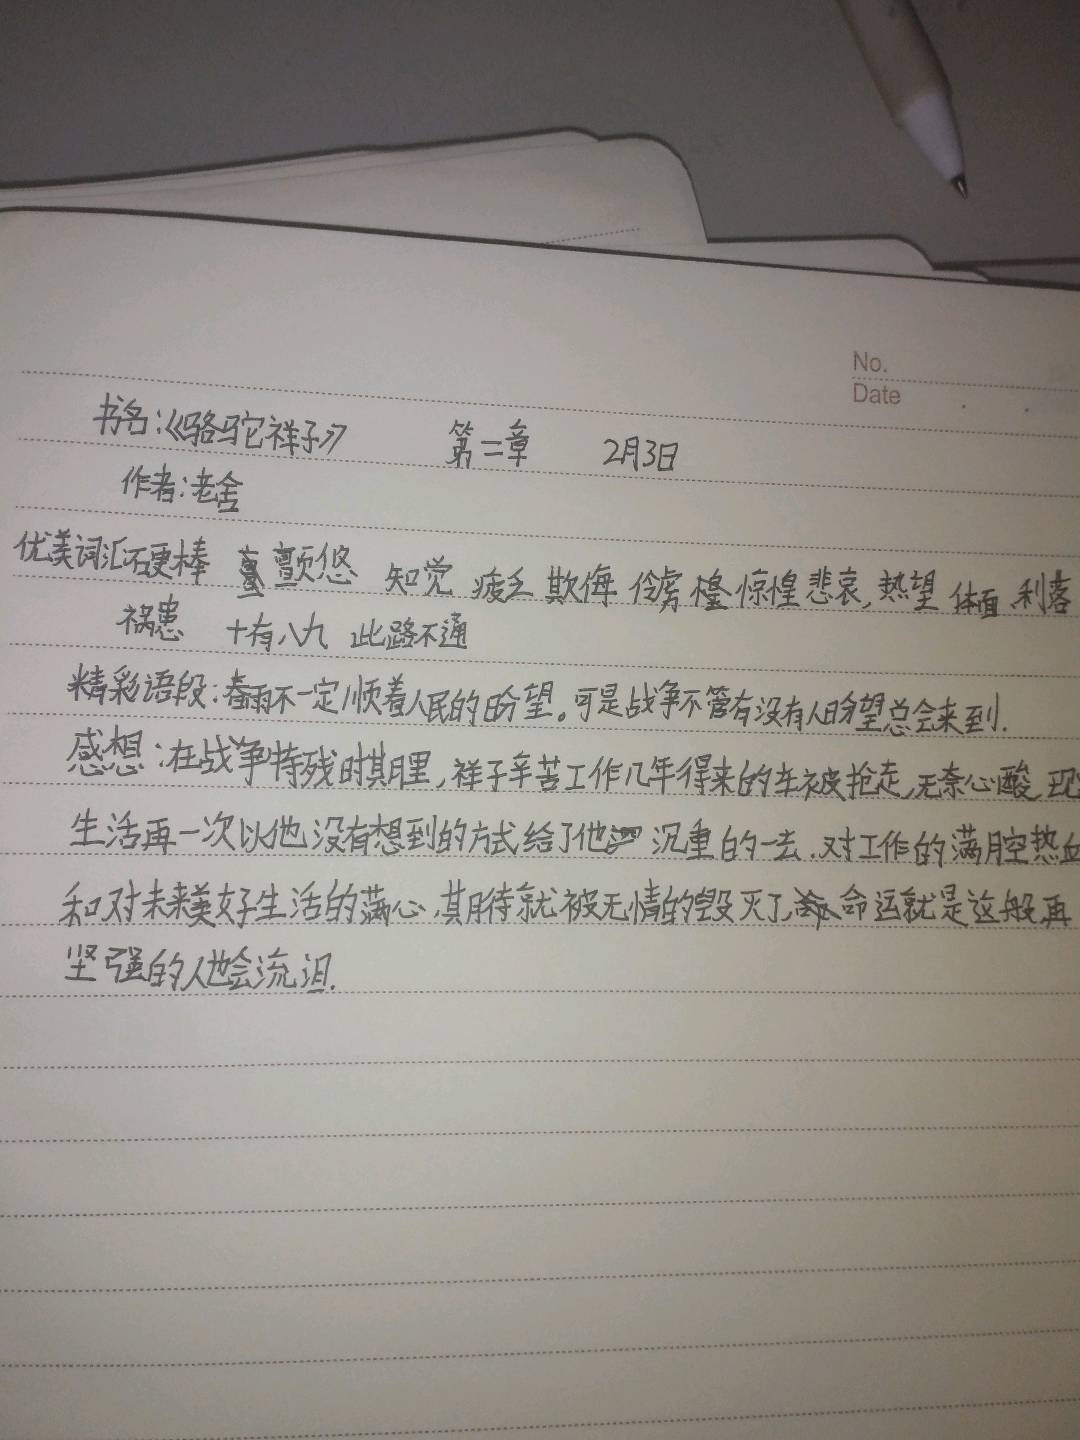 No.
Date
书名:《骆驼祥子》 第二章 2月3日
作者:老舍
优美词汇 硬棒 颤悠 知觉 疲乏 欺侮 伶 惊惶 悲哀, 热望 体面 利落
祸患 十有八九 此路不通
精彩语段:春雨不一定顺着人民的盼望。可是战争不管有没有人盼望总会来到.
感想:在战争特残时期里,祥子辛苦工作几年得来的车被抢走,无奈心酸,现
生活再一次以他没有想到的方式给了他 沉重的一击.对工作的满腔热血
和对未来美好生活的满心期待就被无情的毁灭了, 命运就是这般,再
坚强的人也会流泪.